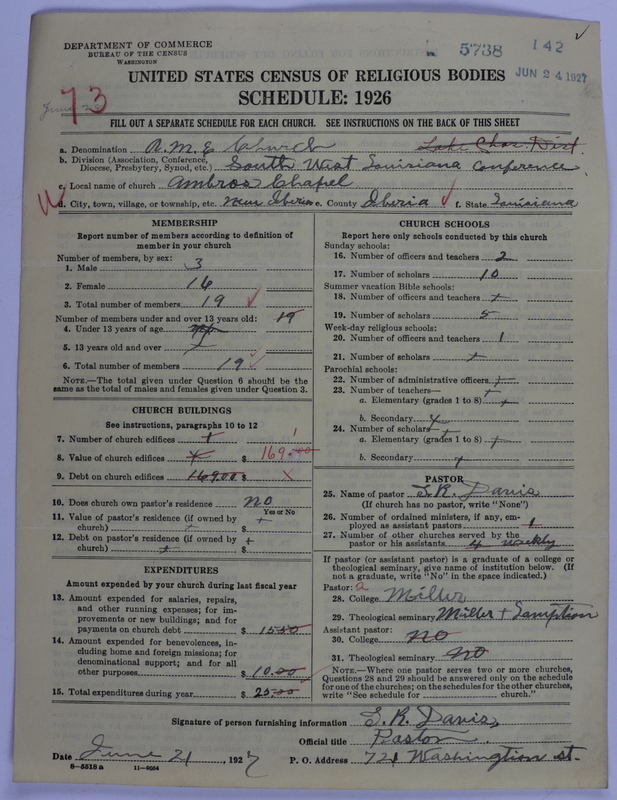 DEPARTMENT OF COMMERCE
BUREAU OF THE CENSUS
WASHINGTON
5738
142
JUN 24 1927
UNITED STATES CENSUS OF RELIGIOUS BODIES
SCHEDULE: 1926
73
FILL OUT A SEPARATE SCHEDULE FOR EACH CHURCH. SEE INSTRUCTIONS ON THE BACK OF THIS SHEET
a. Denomination A.M.E Church Lake Char. Dist.
b. Division (Association, Conference, Diocese, Presbytery, Synod, etc.) South West Louisiana Conference
c. Local name of church Ambros Chapel
d. City, town, village, or township, etc. New Iberia e. County Iberia f. State Louisiana
MEMBERSHIP
Report number of members according to definition of member in your church
Number of members, by sex:
1. Male 3
2. Female 16
3. Total number of members 19
Number of members under and over 13 years old: 19
4. Under 13 years of age
5. 13 years old and over
6. Total number of members 19
NOTE.—The total given under Question 6 should be the same as the total of males and females given under Question 3.
CHURCH BUILDINGS
See instructions, paragraphs 10 to 12
7. Number of church edifices 1 1
8. Value of church edifices + $ 169.00
9. Debt on church edifices 169.00 $ x
10. Does church own pastor's residence no
Yes or No
11. Value of pastor's residence (if owned by church) + $ +
12. Debt on pastor's residence (if owned by church) + $ +
EXPENDITURES
Amount expended by your church during last fiscal year
13. Amount expended for salaries, repairs, and other running expenses; for improvements or new buildings; and for payments on church debt $ 15.00
14. Amount expended for benevolences, including home and foreign missions; for denominational support; and for all other purposes $ 10.00
15. Total expenditures during year $ 25.00
CHURCH SCHOOLS
Report here only schools conducted by this church
Sunday schools:
16. Number of officers and teachers 2
17. Number of scholars 10
Summer vacation Bible schools:
18. Number of officers and teachers +
19. Number of scholars 5
Week-day religious schools:
20. Number of officers and teachers 1
21. Number of scholars +
Parochial schools:
22. Number of administrative officers +
23. Number of teachers— +
a. Elementary (grades 1 to 8) +
b. Secondary +
24. Number of scholars— +
a. Elementary (grades 1 to 8) +
b. Secondary +
PASTOR
25. Name of pastor S.R. Davis
(If church has no pastor, write "None")
26. Number of ordained ministers, if any, employed as assistant pastors 1
27. Number of other churches served by the pastor or his assistants 4 weekly
If pastor (or assistant pastor) is a graduate of a college or theological seminary, give name of institution below. (If not a graduate, write "No" in the space indicated.)
Pastor: 2
28. College Miller
29. Theological seminary Miller + Lampton
Assistant pastor:
30. College no
31. Theological seminary no
NOTE.—Where one pastor serves two or more churches, Questions 28 and 29 should be answered only on the schedule for one of the churches; on the schedules for the other churches, write "See schedule for church."
Signature of person furnishing information S.R. Davis
Official title Pastor
Date June 21, 1927 P. O. Address 721 Washington st.
8-5518a 11-9064